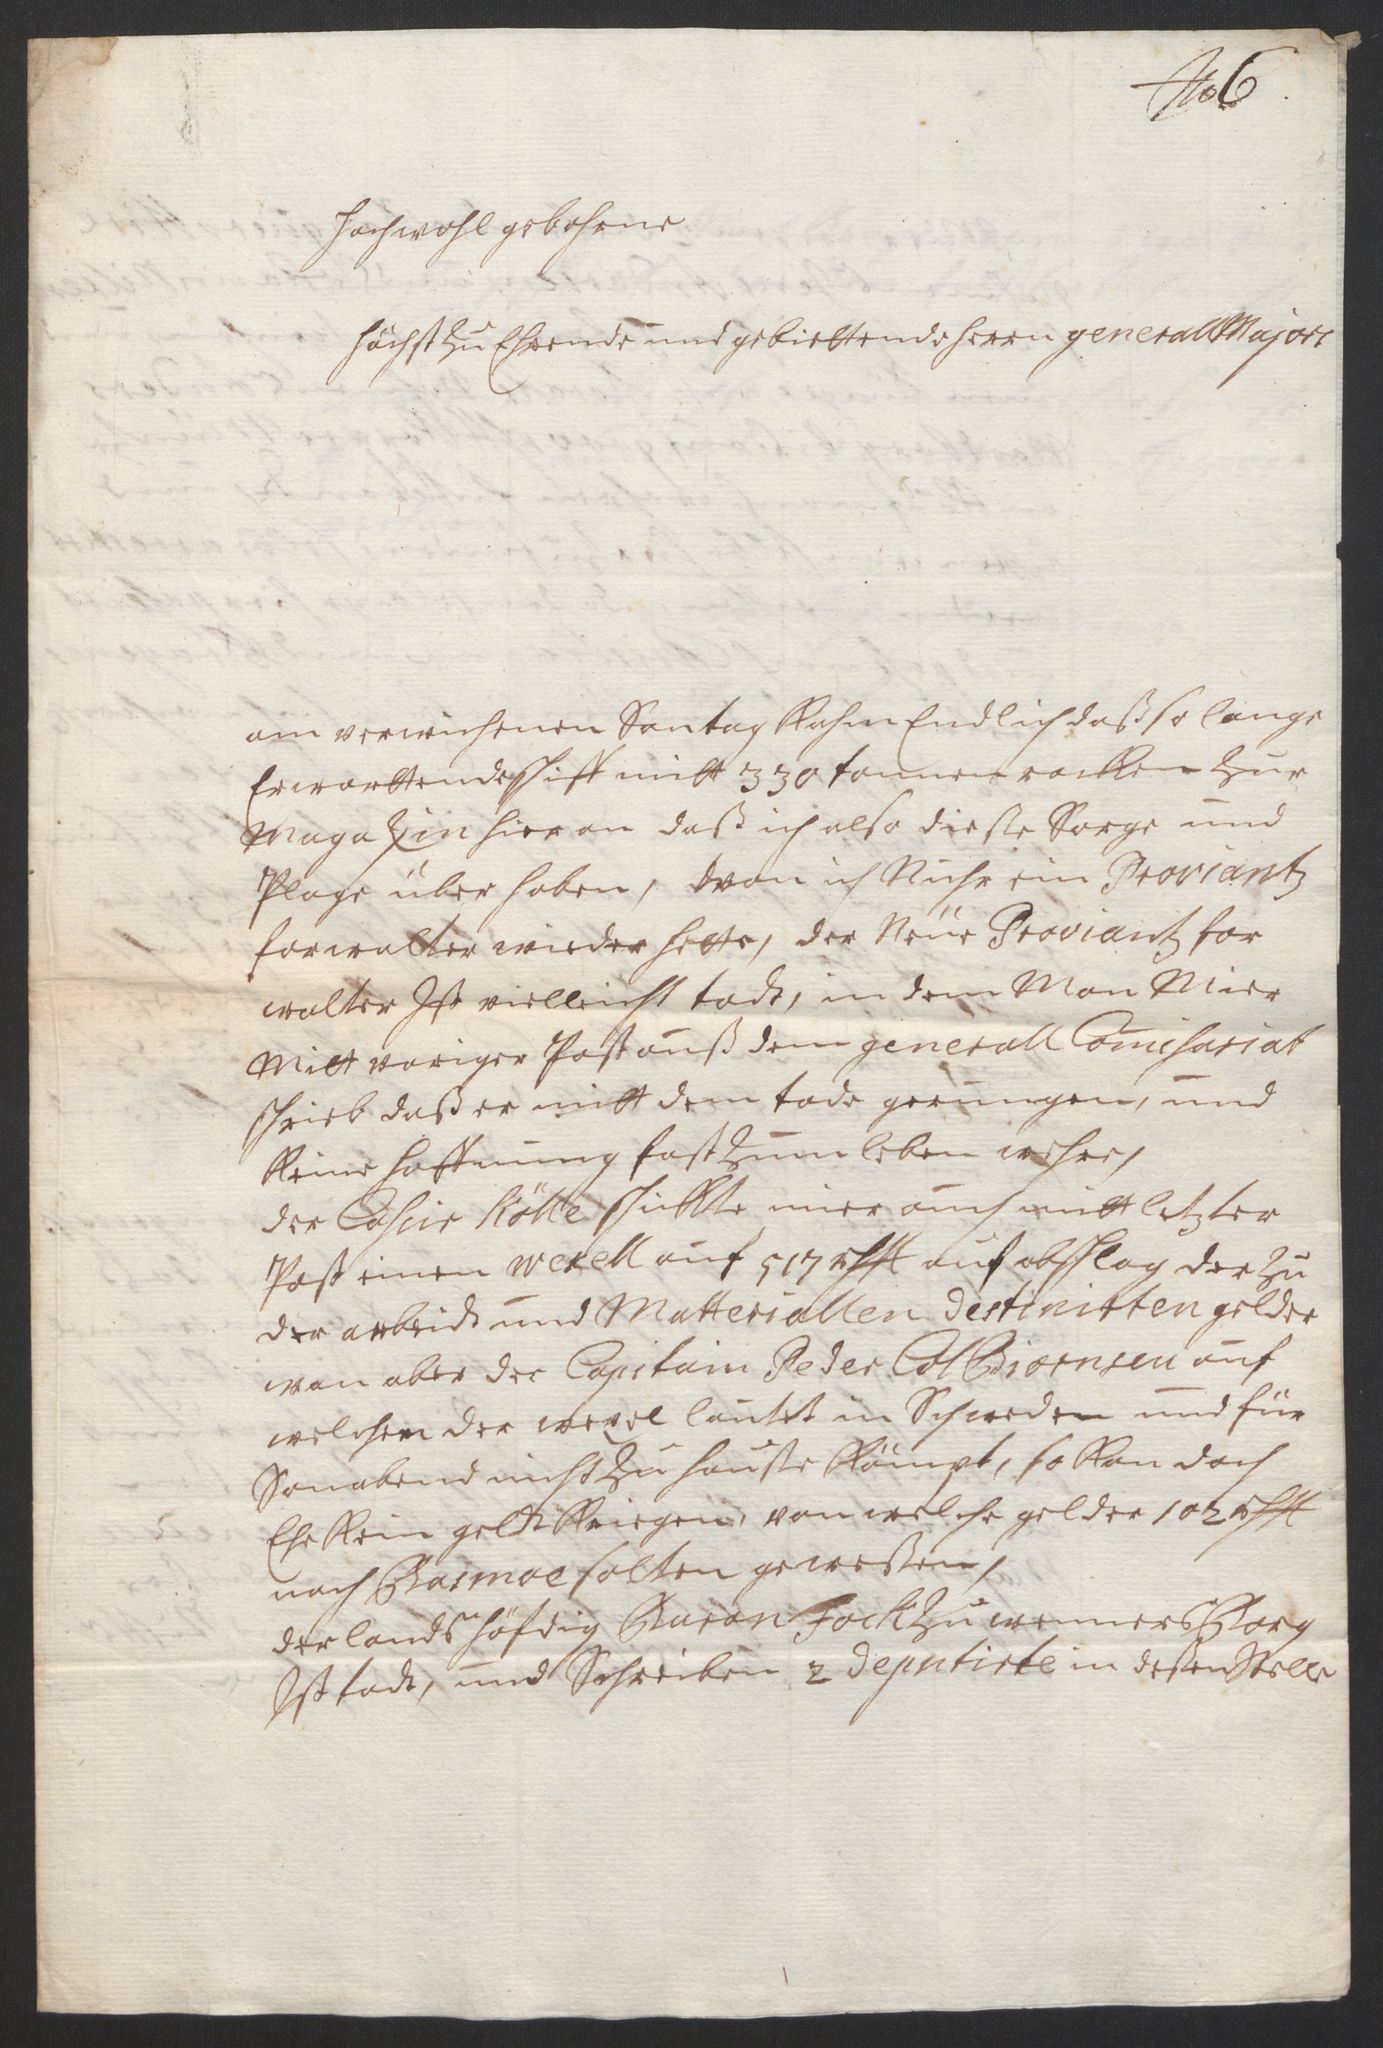 No 6
Hochwohl gebohrne
höchst zu Ehrende und gebiettende Herrn generall Majorr
am verwichenen Sontag Kahm Endlich daß so lange
Erwarttende schiff mitt 330 tonnen rocken zur
Magazin hier an daß ich also dieße Sorge und
Plage über haben, wan ich Nuhr ein Proviantz
forwalter wieder hette, der Neüe Proviantz for
walter Ist vielleicht todt, in dem Man Mier
Mitt voriger Post auß dem generall Comihsariat
schrieb daß er mitt dem tode gerungen, und
Keine hoffnung fast zum leben wehre,
der Cahsir Kölle schikte mier auch mitt letzter
Post einen wexell auf 517 rthlr auf abschlag der zu
der arbeidt und Matteriallen destinirten gelder
wan aber der Capitain Peder ColBiørnsen auf
welchem der wexel lautet in Schweden und für
Sonabend nicht zu hauße Kömpt, so Kan doch
Ehr Kein geldt Kriegen, von welche gelder 102 rthlr
nach Basmoe solten gewesßen,
der lands höfdig Baron Fock zu wenners Borg
Ist todt, und Schreiben 2 deputirte in deßen Stelle